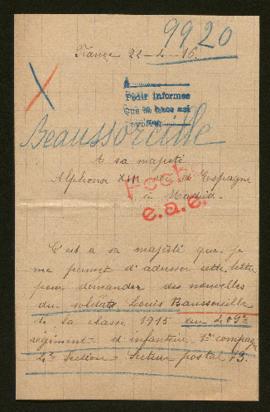 9920
France 22-4-16
A
Pedir informes
que se hace asi
Beaussoreille
A sa majesté
Alphonse XIII roi d'Espagne
à Madrid.
Fecho
e.a.e.
C'est a sa majesté que je
me permet d'adresser cette lettre
pour demander des nouvelles
du soldats Louis Beaussoreille
de la classe 1915 au 409e
régiment d'infanterie 1re compagnie
2e Section Secteur postal 13.